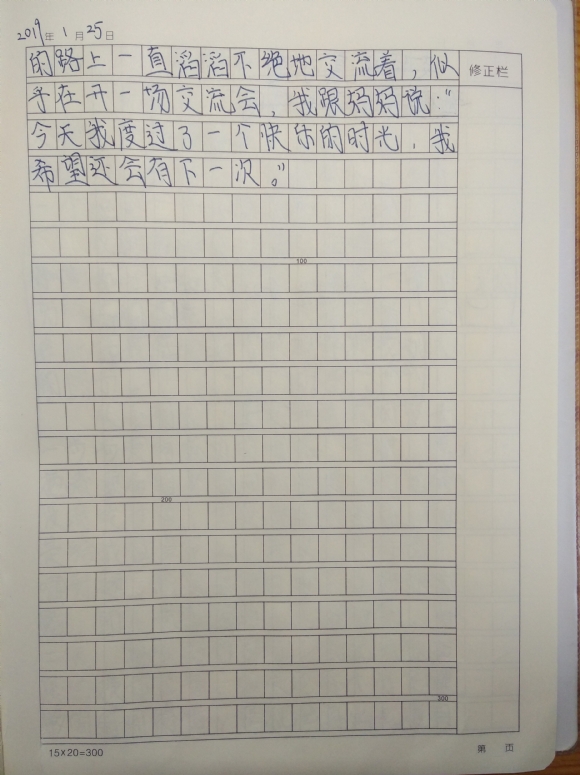 2019年1月25日
的路上一直滔滔不绝地交流着，似
修正栏
乎在开一场交流会，我跟妈妈说："
今天我度过了一个快乐的时光，我
希望还会有下一次。"
100
200
300
15×20=300
第 页